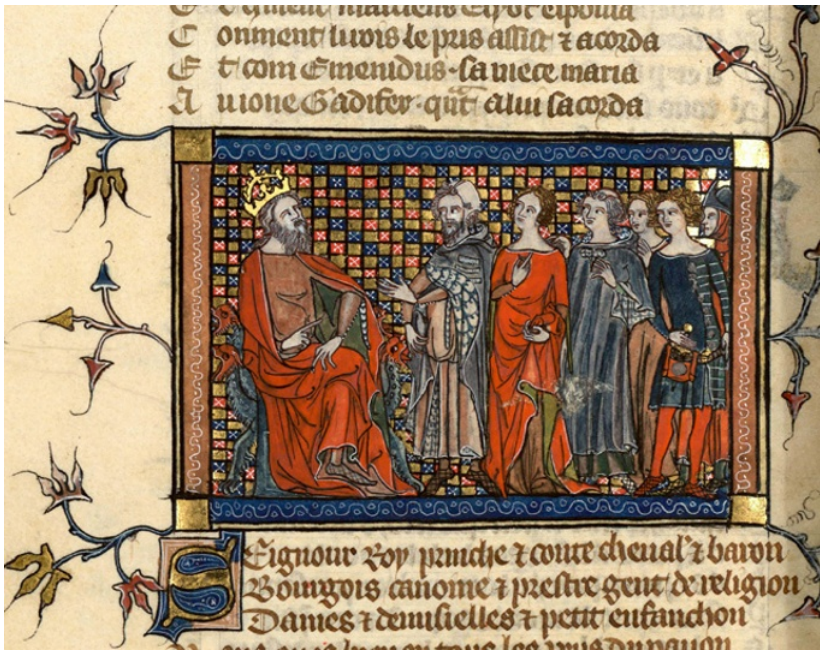 C onment luvis le pris assist ⁊ acorda
E t com Emenidus sa niece maria
A uione Gadifer qūt a lui sacorda
Seignour Roy prinche ⁊ conte cheual' ⁊ baron
Bourgois canoine ⁊ prestre gent de religion
Dames ⁊ demisielles ⁊ petit enfanchon